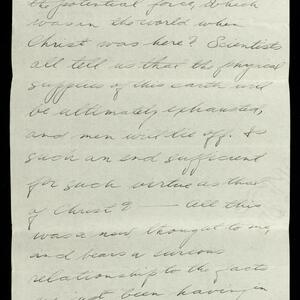 the potential force, which
was in the world when
Christ was here? Scientists
all tell us that the physical
supplies of this earth will
be ultimately exhausted,
and men will die off. Is
such an end sufficient
for such virtue as that
of Christ? — all this
was a new thought to me,
and bears a curious
relationship to the facts
been having in